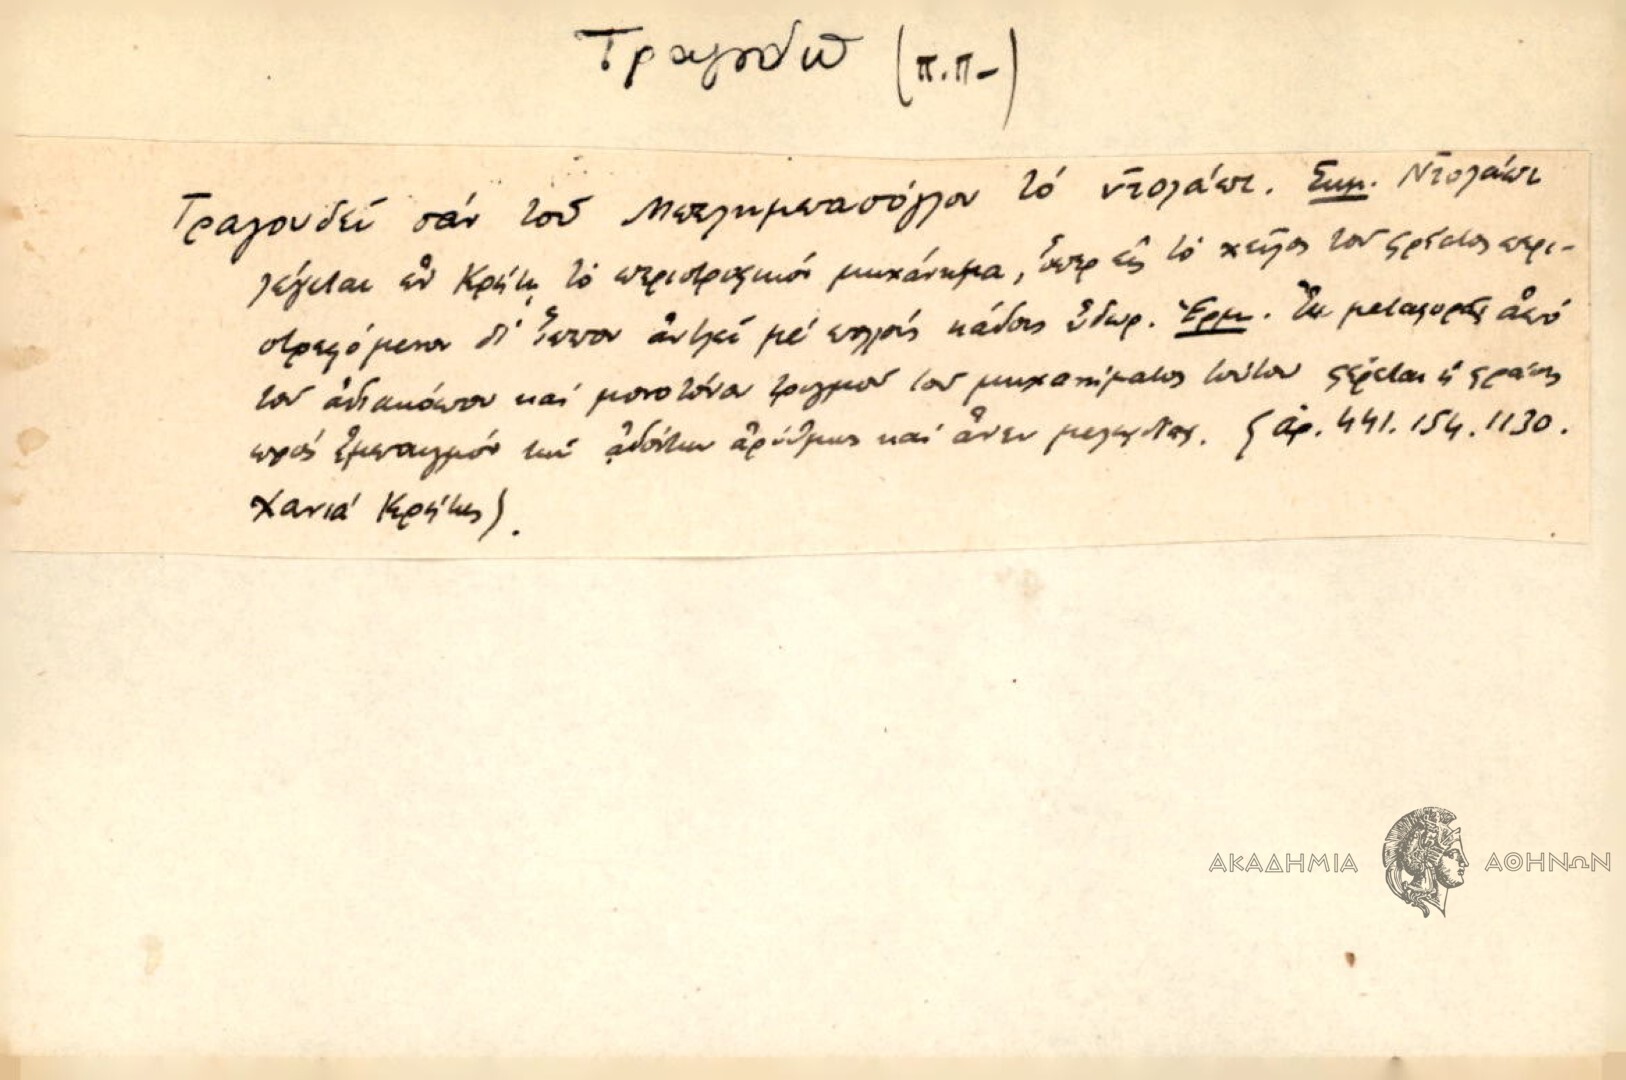 Τραγουδῶ (π.π-)
Τραγουδεῖ σάν τοῦ Μπελημπασόγλου τό ντολάπι. Σημ. Ντολάπι
λέγεται ἐν Κρήτῃ τό περιστροφικόν μηχάνημα, ὅπερ εἰς τό χεῖλος τοῦ φρέατος περι-
στρεφόμενον δι' ἵππου ἀντλεῖ μέ πολλούς κάδους ὕδωρ. Ἑρμ. Ἐκ μεταφορᾶς ἀπό
τοῦ ἀδιακόπου καί μονοτόνου τριγμοῦ τοῦ μηχανήματος τούτου φέρεται ἡ φράσις
πρός ἐμπαιγμόν τῶν ᾀδόντων ἀρρύθμως καί ἄνευ μελῳδίας. (ἀρ. 441. 154. 1130.
Χανιά Κρήτης).
ΑΚΑΔΗΜΙΑ ΑΘΗΝΩΝ